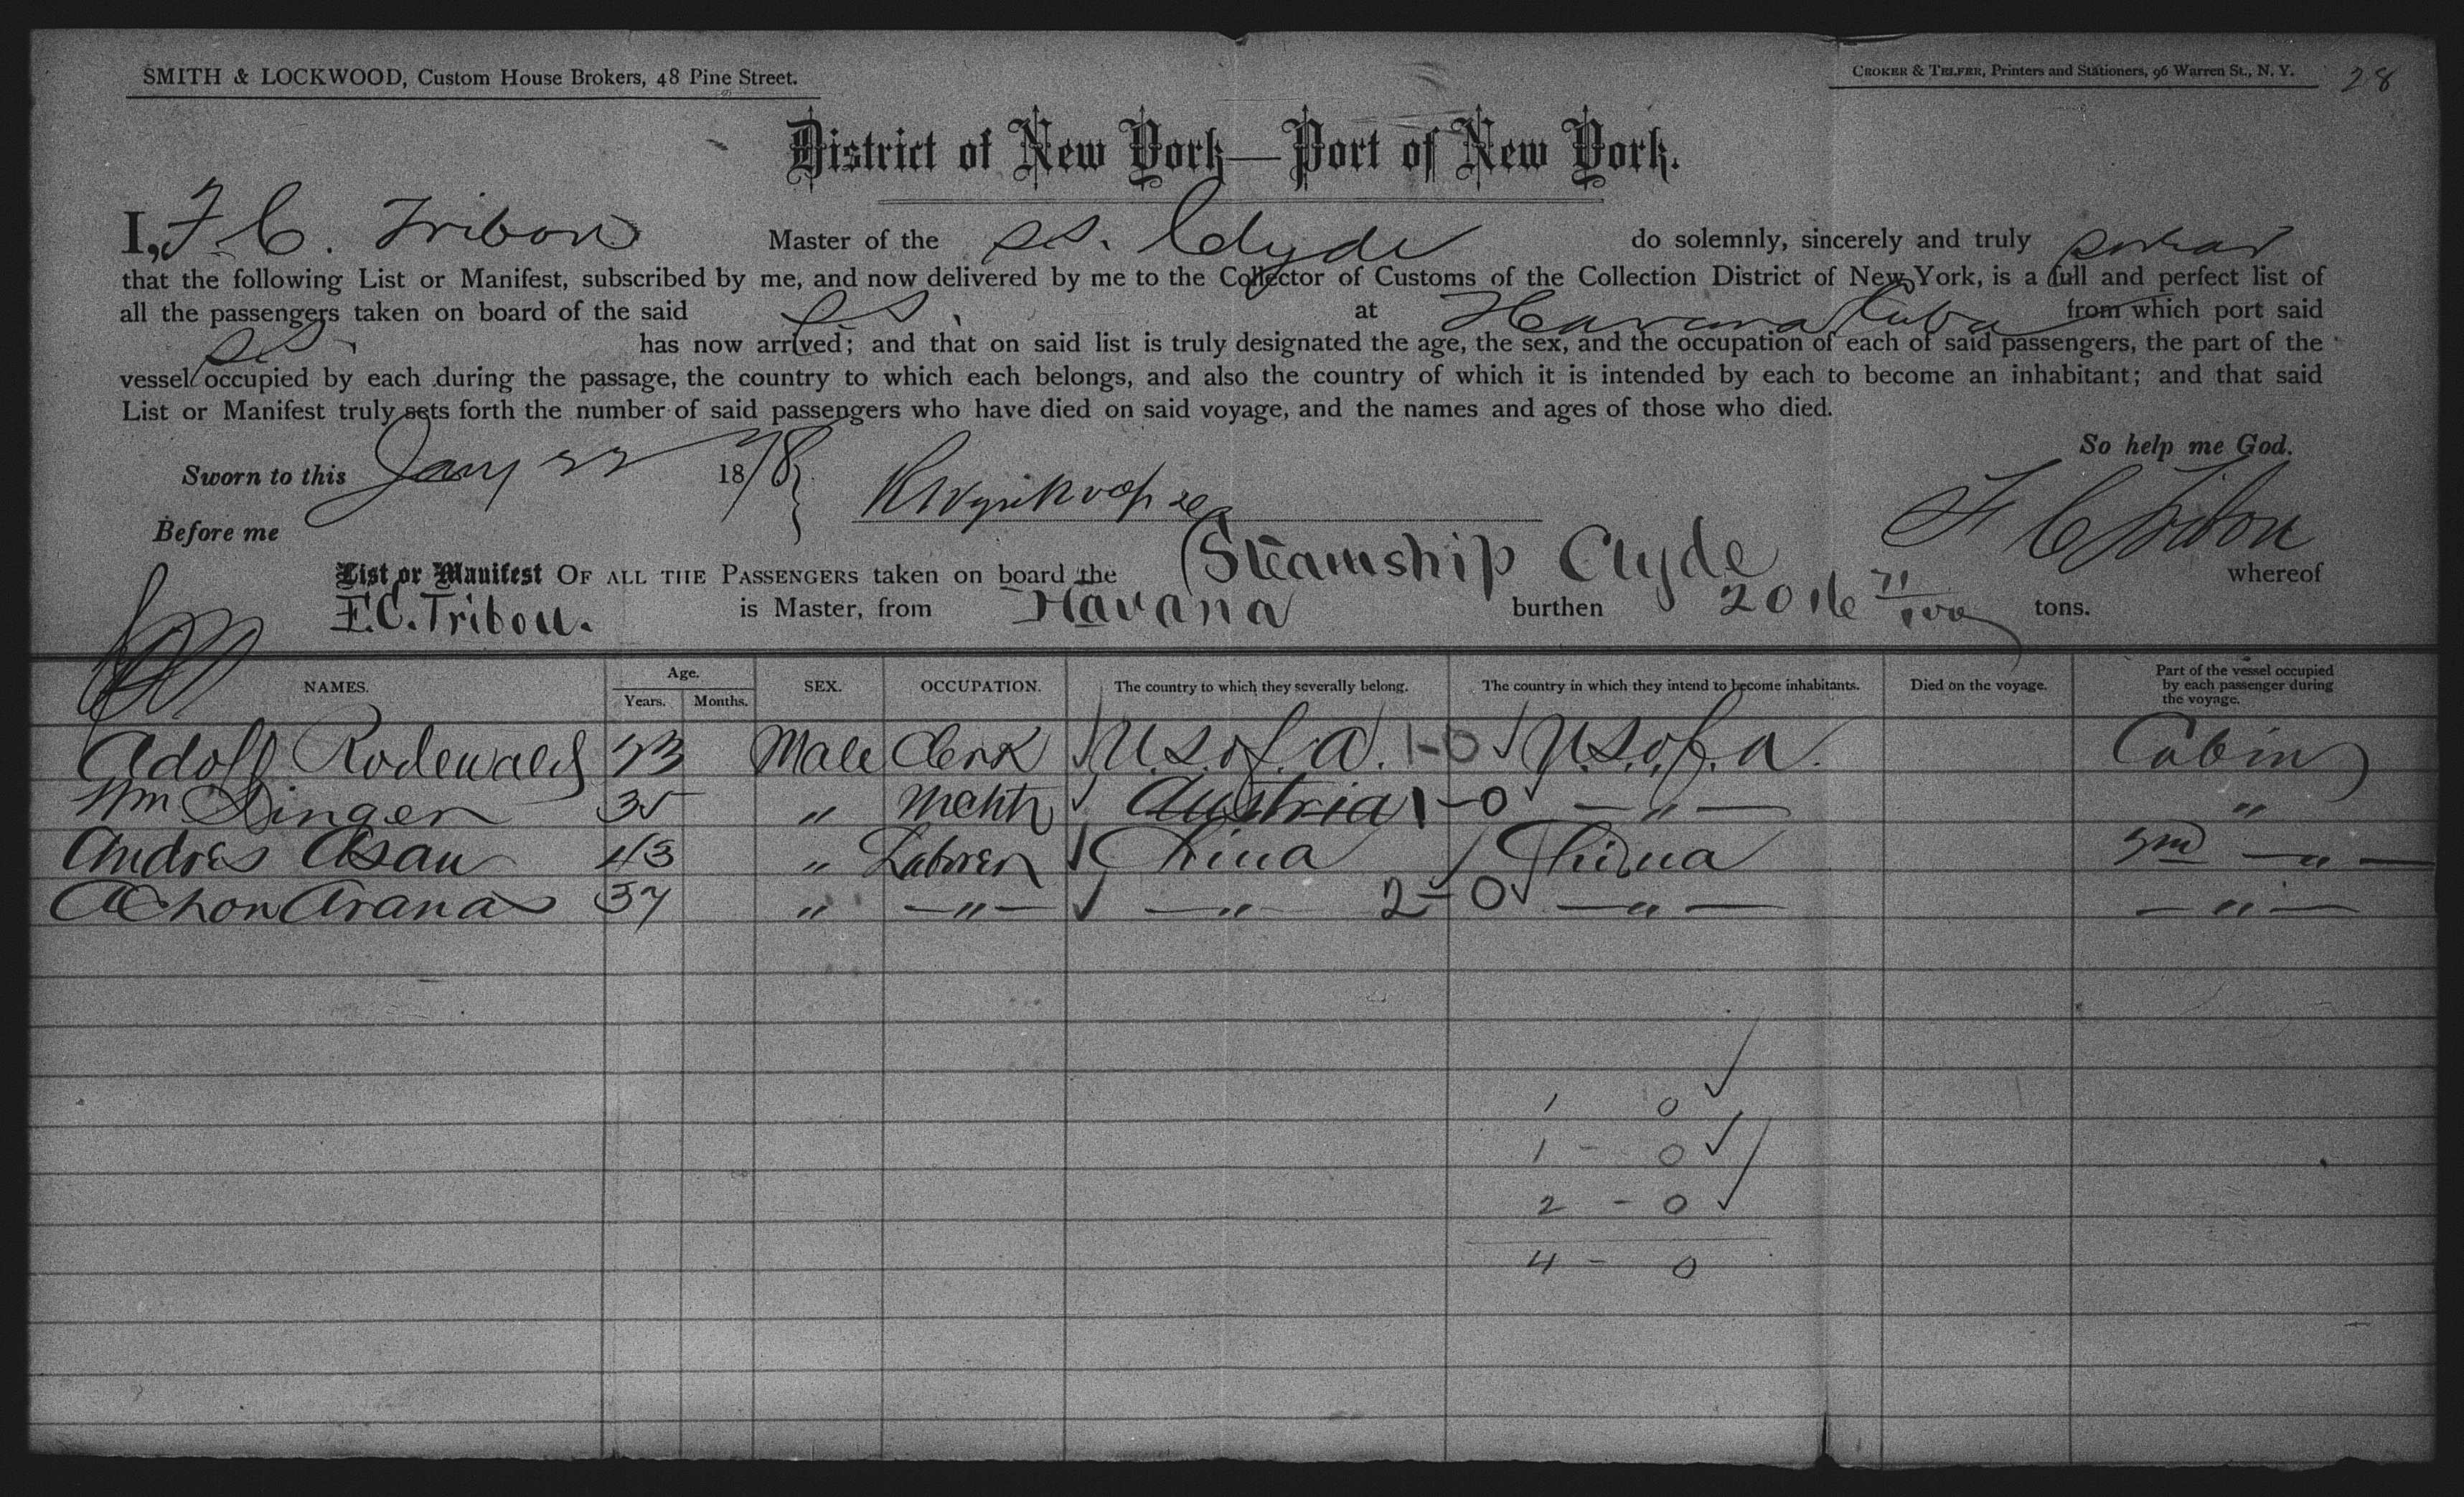 SMITH & LOCKWOOD, Custom House Brokers, 48 Pine Street.
CROKER & TELFER, Printers and Stationers, 96 Warren St., N. Y. 28
District of New York—Port of New York.
I, F. C. Tribou Master of the SS. Clyde do solemnly, sincerely and truly swear
that the following List or Manifest, subscribed by me, and now delivered by me to the Collector of Customs of the Collection District of New York, is a full and perfect list of
all the passengers taken on board of the said SS. at Havana Cuba from which port said
SS. has now arrived; and that on said list is truly designated the age, the sex, and the occupation of each of said passengers, the part of the
vessel occupied by each during the passage, the country to which each belongs, and also the country of which it is intended by each to become an inhabitant; and that said
List or Manifest truly sets forth the number of said passengers who have died on said voyage, and the names and ages of those who died.
So help me God.
Sworn to this Jany 22 1878
F C Tribou
Before me
List or Manifest OF ALL THE PASSENGERS taken on board the Steamship Clyde whereof
F.C. Tribou. is Master, from Havana burthen 2016 71/100 tons.
NAMES. Age. Years. Months. SEX. OCCUPATION. The country to which they severally belong. The country in which they intend to become inhabitants. Died on the voyage. Part of the vessel occupied by each passenger during the voyage.
Adolf Rodewald Male Clerk U.S. of. A. 1-0 U.S. of. A. Cabin
Wm Singer 35 " Mcht Austria 1-0 — " — "
Andres Asau 43 " Laborer China China 2nd — " —
Achon Arana 37 " — " — — " 2-0 — " — — " —
1 0
1 - 0
2 - 0
4 - 0